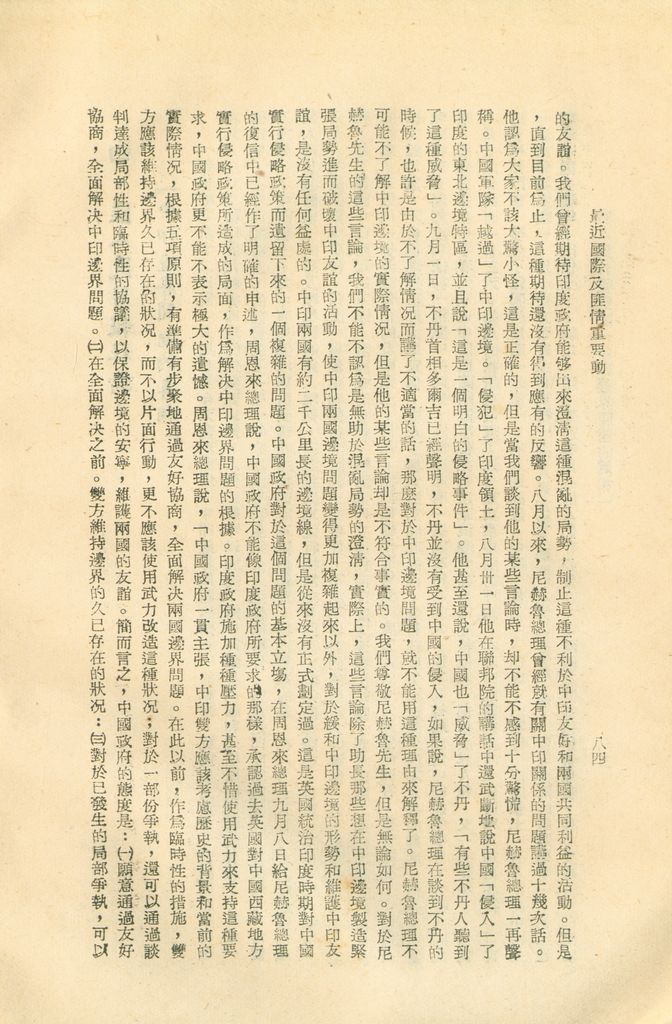 最近國際及匪情重要動
八四
的友誼。我們曾經期待印度政府能够出來澄清這種混亂的局勢，制止這種不利於中印友好和兩國共同利益的活動。但是
，直到目前為止，這種期待還沒有得到應有的反響。八月以來，尼赫魯總理曾經就有關中印關係的問題講過十幾次話。
他認為大家不該大驚小怪，這是正確的，但是當我們談到他的某些言論時，却不能不感到十分驚慌，尼赫魯總理一再聲
稱。中國軍隊「越過」了中印邊境。「侵犯」了印度領土，八月卅一日他在聯邦院的講話中還武斷地說中國「侵入」了
印度的東北邊境特區，並且說「這是一個明白的侵略事件」。他甚至還說，中國也「威脅」了不丹，「有些不丹人聽到
了這種威脅」。九月一日，不丹首相多爾吉已經聲明，不丹並沒有受到中國的侵入，如果說，尼赫魯總理在談到不丹的
時候，也許是由於不了解情況而講了不適當的話，那麼對於中印邊境問題，就不能用這種理由來解釋了。尼赫魯總理不
可能不了解中印邊境的實際情況，但是他的某些言論却是不符合事實的。我們尊敬尼赫魯先生，但是無論如何。對於尼
赫魯先生的這些言論，我們不能不認為是無助於混亂局勢的澄清，實際上，這些言論除了助長那些想在中印邊境製造緊
張局勢進而破壞中印友誼的活動，使中印兩國邊境問題變得更加複雜起來以外，對於緩和中印邊境的形勢和維護中印友
誼，是沒有任何益處的。中印兩國有約二千公里長的邊境線，但是從來沒有正式劃定過。這是英國統治印度時期對中國
實行侵略政策而遺留下來的一個複雜的問題。中國政府對於這個問題的基本立場，在周恩來總理九月八日給尼赫魯總理
的復信中已經作了明確的申述，周恩來總理說，中國政府不能像印度政府所要求的那樣，承認過去英國對中國西藏地方
實行侵略政策所造成的局面，作爲解決中印邊界問題的根據。印度政府施加種種壓力，甚至不惜使用武力來支持這種要
求，中國政府更不能不表示極大的遺憾。周恩來總理說，「中國政府一貫主張，中印雙方應該考慮歷史的背景和當前的
實際情況，根據五項原則，有準備有步聚地通過友好協商，全面解決兩國邊界問題。在此以前，作爲臨時性的措施，雙
方應該維持邊界久已存在的狀況，而不以片面行動，更不應該使用武力改造這種狀況；對於一部份爭執，還可以通過談
判達成局部性和臨時性的協議，以保證邊境的安寧，維護兩國的友誼。簡而言之，中國政府的態度是：㈠願意通過友好
協商，全面解決中印邊界問題。㈡在全面解決之前。雙方維持邊界的久已存在的狀況：㈢對於已發生的局部爭執，可以